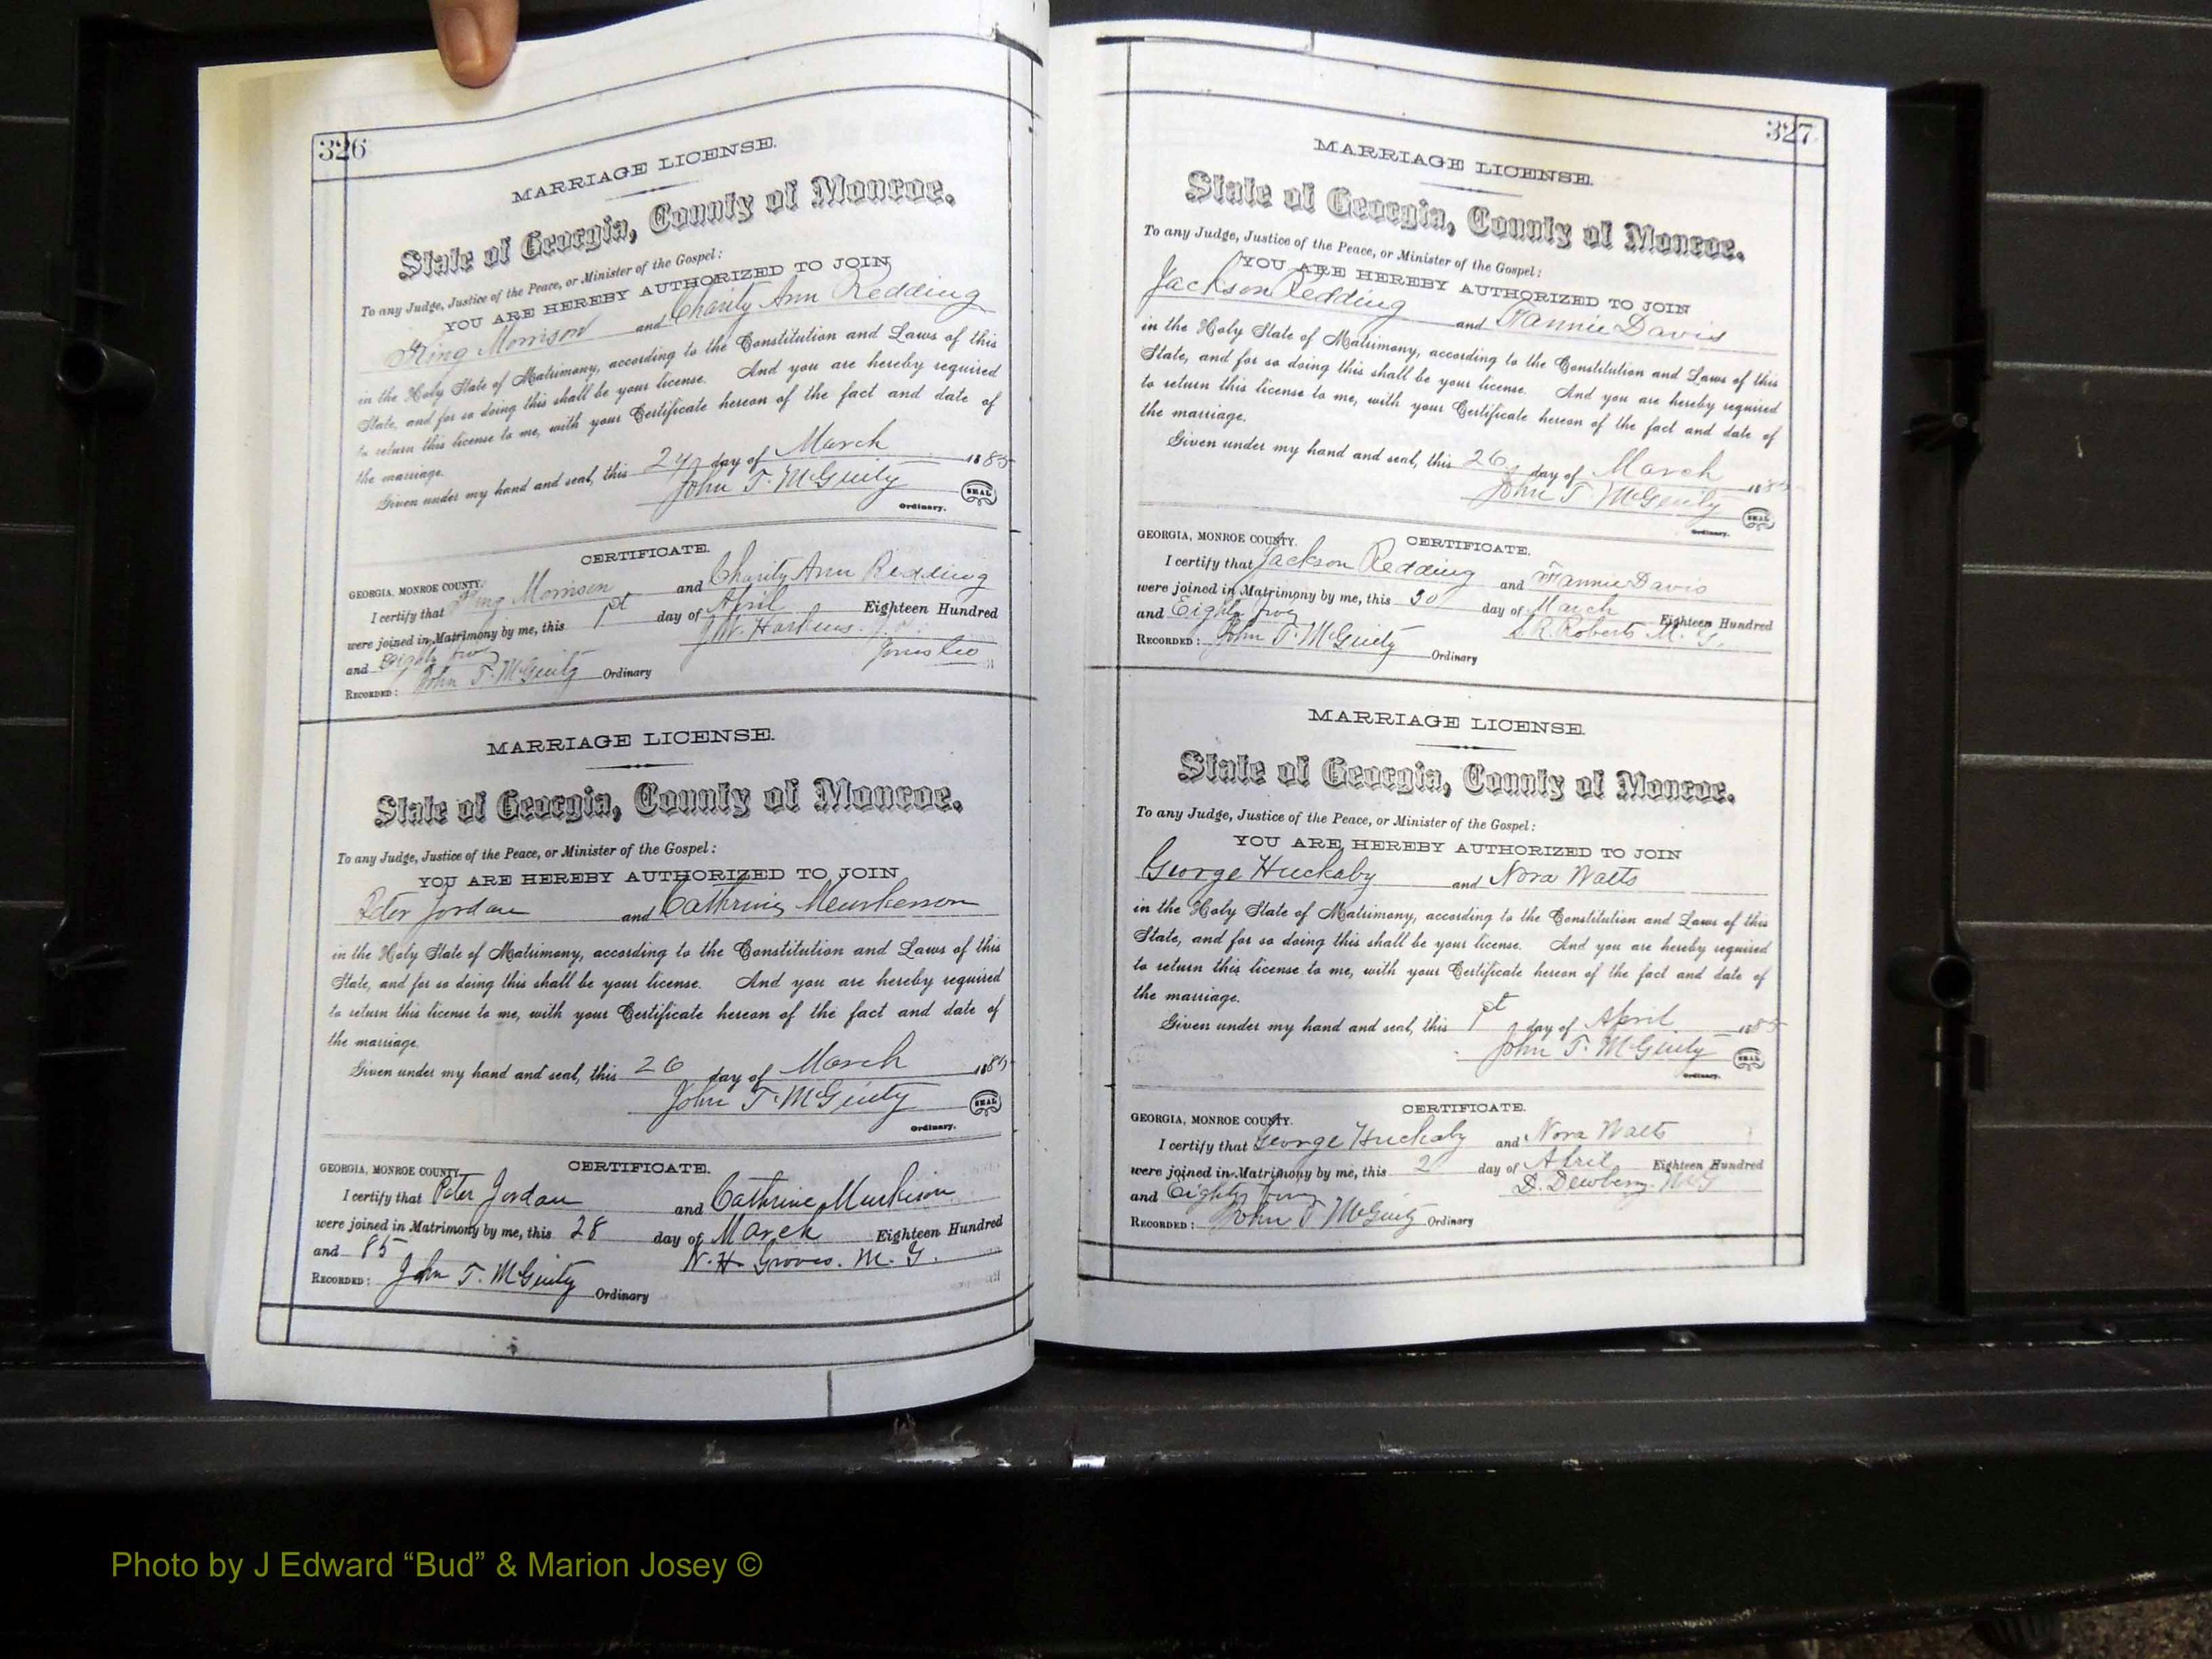 326
MARRIAGE LICENSE.
State of Georgia, County of Monroe.
To any Judge, Justice of the Peace, or Minister of the Gospel:
YOU ARE HEREBY AUTHORIZED TO JOIN
King Morrison and Charity Ann Redding
in the Holy State of Matrimony, according to the Constitution and Laws of this
State, and for so doing this shall be your license. And you are hereby required
to return this license to me, with your Certificate hereon of the fact and date of
the marriage.
Given under my hand and seal, this day of March 1885
John T. McGinty SEAL
Ordinary.
CERTIFICATE.
GEORGIA, MONROE COUNTY.
I certify that King Morrison and Charity Ann Redding
were joined in Matrimony by me, this 1st day of April Eighteen Hundred
and Eighty five
RECORDED: John T. McGinty Ordinary
MARRIAGE LICENSE.
State of Georgia, County of Monroe.
To any Judge, Justice of the Peace, or Minister of the Gospel:
YOU ARE HEREBY AUTHORIZED TO JOIN
Peter Jordan and Cathrine
in the Holy State of Matrimony, according to the Constitution and Laws of this
State, and for so doing this shall be your license. And you are hereby required
to return this license to me, with your Certificate hereon of the fact and date of
the marriage.
Given under my hand and seal, this 26 day of March 1885
John T. McGinty SEAL
Ordinary.
CERTIFICATE.
GEORGIA, MONROE COUNTY.
I certify that Peter Jordan and Cathrine Murkison
were joined in Matrimony by me, this 28 day of March Eighteen Hundred
and 85 N. H. Groves. M. G.
RECORDED: John T. McGinty Ordinary
327
MARRIAGE LICENSE.
State of Georgia, County of Monroe.
To any Judge, Justice of the Peace, or Minister of the Gospel:
YOU ARE HEREBY AUTHORIZED TO JOIN
Jackson Redding and Fannie Davis
in the Holy State of Matrimony, according to the Constitution and Laws of this
State, and for so doing this shall be your license. And you are hereby required
to return this license to me, with your Certificate hereon of the fact and date of
the marriage.
Given under my hand and seal, this 26 day of March 1885
John T McGinty SEAL
Ordinary.
CERTIFICATE.
GEORGIA, MONROE COUNTY.
I certify that Jackson Redding and Fannie Davis
were joined in Matrimony by me, this 30 day of March Eighteen Hundred
and Eighty five R. Roberts M. G.
RECORDED: John T. McGinty Ordinary
MARRIAGE LICENSE.
State of Georgia, County of Monroe.
To any Judge, Justice of the Peace, or Minister of the Gospel:
YOU ARE HEREBY AUTHORIZED TO JOIN
George Huckaby and Nora Watts
in the Holy State of Matrimony, according to the Constitution and Laws of this
State, and for so doing this shall be your license. And you are hereby required
to return this license to me, with your Certificate hereon of the fact and date of
the marriage.
Given under my hand and seal, this 1st day of April 1885
John T. McGinty SEAL
Ordinary.
CERTIFICATE.
GEORGIA, MONROE COUNTY.
I certify that George Huckaby and Nora Watts
were joined in Matrimony by me, this 2 day of April Eighteen Hundred
and Eighty five D. Dewberry M G
RECORDED: John T McGinty Ordinary
Photo by J Edward “Bud” & Marion Josey ©